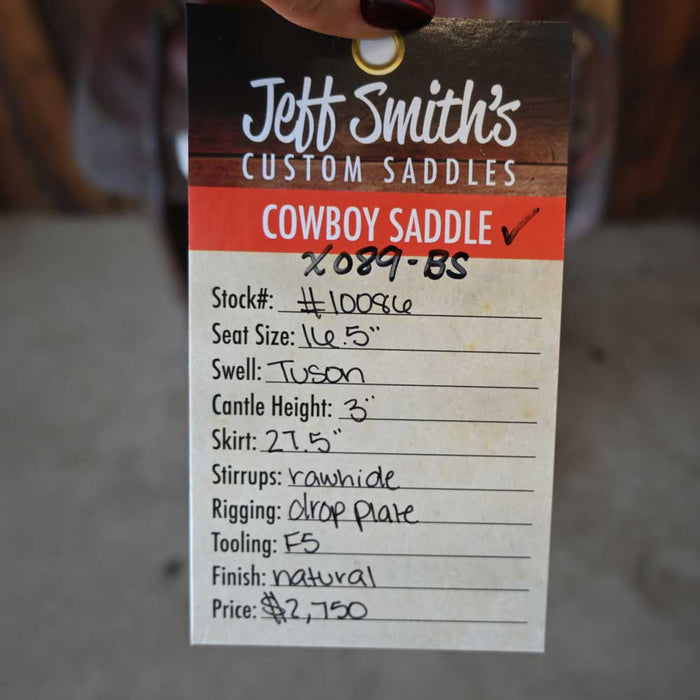 Jeff Smith's
CUSTOM SADDLES
COWBOY SADDLE ✓
X089-BS
Stock#: #10086
Seat Size: 16.5"
Swell: Tuson
Cantle Height: 3"
Skirt: 27.5"
Stirrups: rawhide
Rigging: drop plate
Tooling: F5
Finish: natural
Price: $2,750